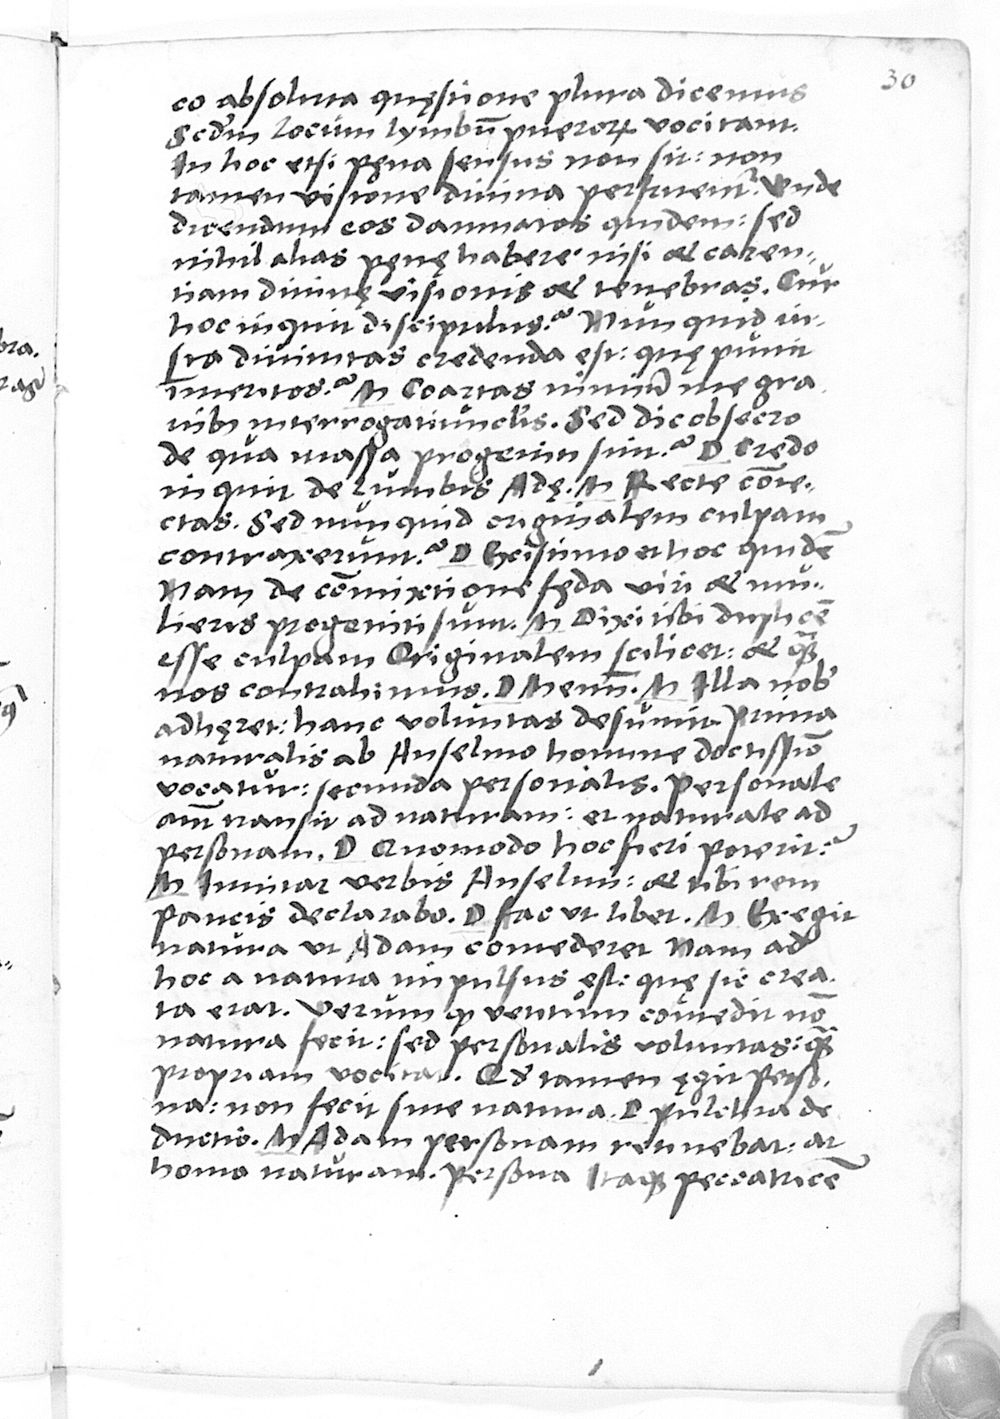 30
co absoluta quęstione plura dicemus
Scdm̄ locum lymbū pueroꝝ vocitant.
In hoc etsi pęna sensus non sit: non
tamen visione diuina perfruent᷑. Vnde
dicendum eos damnatos quidem: sed
nihil alias pęnę habere nisi & caren-
tiam diuinę visionis & tenebras. Cur
hoc inquit discipulus? Nunquid in-
sta diuinitas credenda est: quę punit
imeritos? M Coartas nimiū me gra
uibꝰ interrogatiunculis. Sed dic obsecro
de qua massa progeniti sint? D Credo
inquit de lumbis Adę. M Recte cōie-
ctas. Sed nunquid originalem culpam
contraxerunt? D Existimo et hoc quidē
Nam de cōmixtione fęda viri & mu-
lieris progeniti sunt. M Dixi tibi duplicē
esse culpam Originalem scilicet: & quā
nos contrahimus. D Meminī. M Illa nob̄
adhęret: hanc voluntas desumit. Prima
naturalis ab Anselmo homine doctissimō
vocatur: secunda personalis. Personale
aūt transit ad naturam: et naturale ad
personam. D Quomodo hoc fieri poterit?
M Imitar verbis Anselmi: & tibi rem
paucis declarabo. D Fac ut libet. M Exegit
natura ut Adam comederet Nam ad
hoc a natura impulsus ęst: quę sic crea-
ta erat. Verum ꝙ vetitum comedit nō
natura fecit: sed personalis voluntas: quā
propriam vocitat. Qd̄ tamen ęgit Perso-
na: non fecit sine natura. D pulchra de
ductio. M Adam personam tenebat: at
homo naturam. Persona Itaqꝫ peccatricē